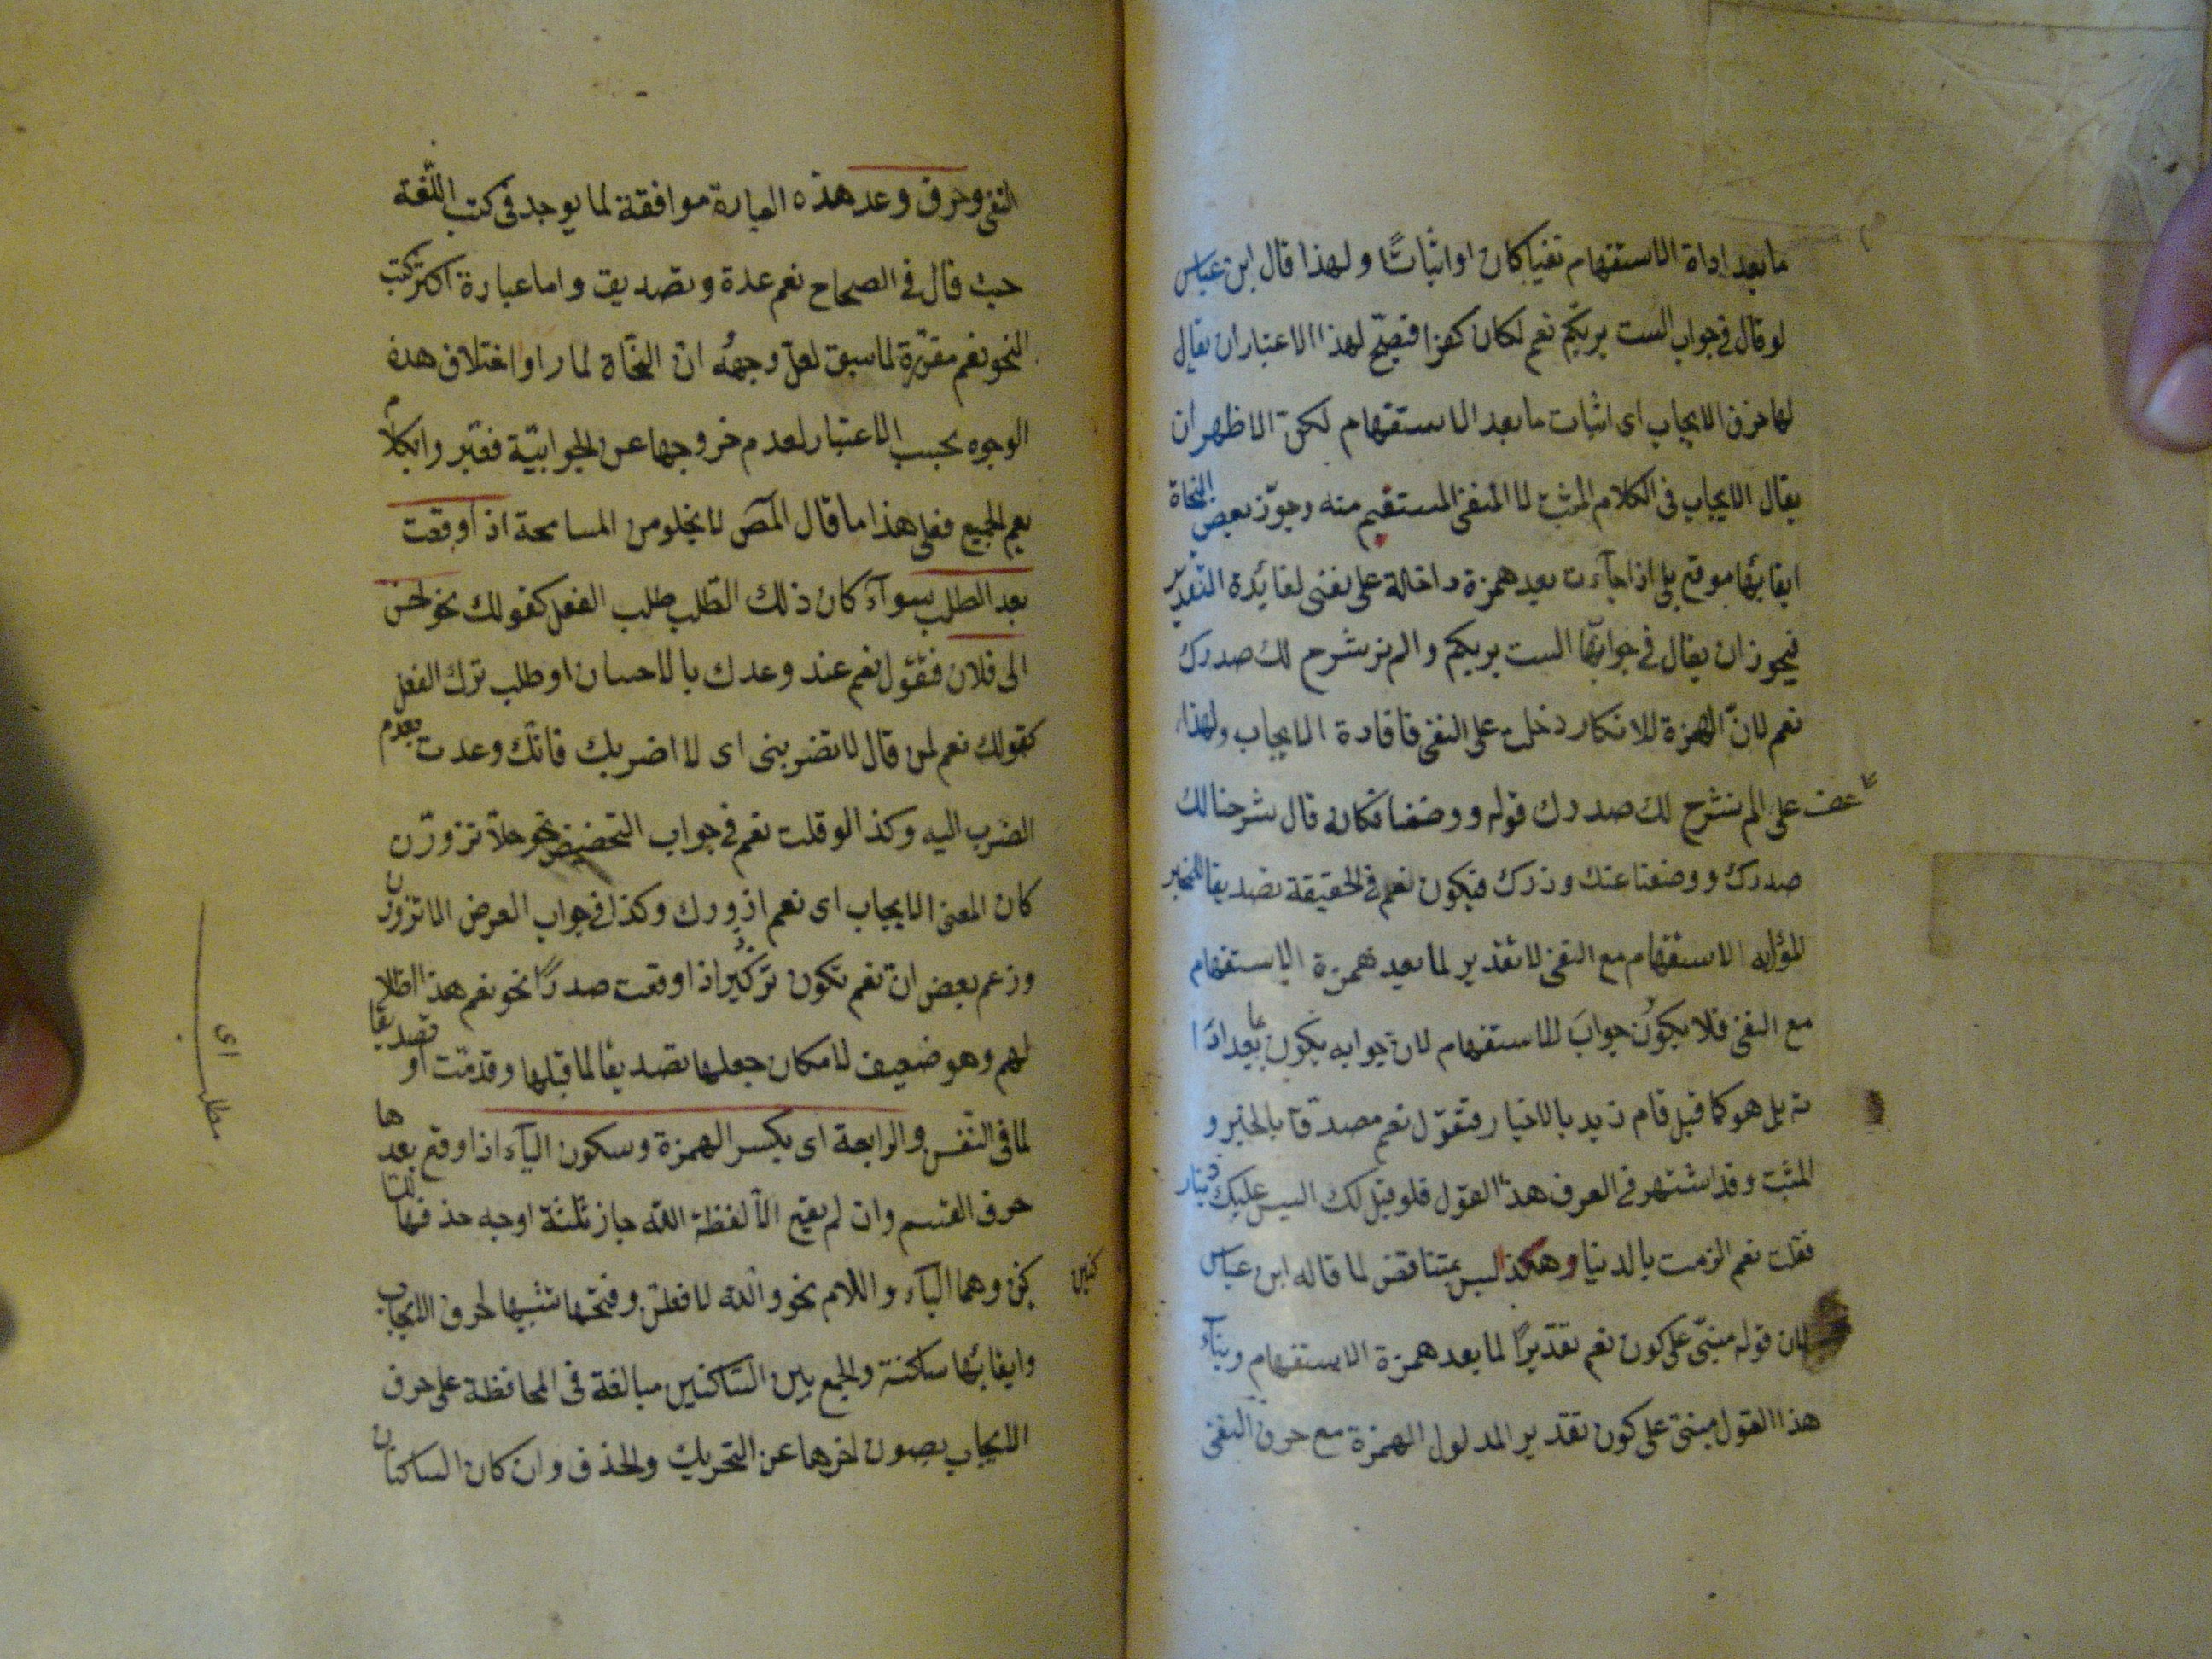 ما بعد اداة الاستفهام نفيا كان او اثباتًا ولهذا قال ابن عباس
لو قال فى جواب الست بربكم نعم لكان كفرا فيصحّ لهذا الاعتبار ان يقال
لها حرف الايجاب اى اثبات ما بعد الاستفهام لكنّ الاظهر ان
يقال الايجاب فى الكلام المثبت لا المنفى المستفهم منه وجوّز بعض النحاة
ايقائها موقع بلى اذا جاءت بعد همزة داخالة على نفى لفائدة التقدير
فيجوز ان يقال فى جوابها الست بربكم والم نشرح لك صدرك
نعم لانّ الهمزة للانكار دخلت على النفى فافادة الايجاب ولهذا
عطف على الم نشرح لك صدرك قوله ووضعنا فكانه قال شرحنا لك
صدرك ووضعنا عنك وزرك فيكون نعم فى الحقيقة تصديقا للخبر
المؤل به الاستفهام مع النفى لا تقدير لما بعد همزة الاستفهام
مع النفى فلا يكون جواب للاستفهام لان جوابه يكون بما بعد ادا
ته بل هو كما قيل قام زيد بالاخبار فتقول نعم مصدقا بالخبر و
المثبت وقد اشتهر فى العرف هذا القول فلو قيل لك اليس عليك دينار
فقلت نعم الزمت بالدنيا وهكذا ليس بمتناقض لما قاله ابن عباس
لان قوله مبنىّ على كون نعم تقديرًا لما بعد همزة الاستفهام وبناء
هذا القول مبنى على كون تقدير المدلول الهمزة مع حرف النفى
النفى وحرف وعد هذه العبارة موافقة لما يوجد فى كتب اللغة
حيث قال فى الصحاح نعم عدة وتصديق واما عبارة اكثر كتب
النحو نعم مقرّرة لما سبق لعلّ وجهه انّ النحاة لما راوا اختلاف هذه
الوجوه بحسب الاعتبار لعدم خروجها عن الجوابيّة فعبّروا بكلام
يعم الجميع فعلى هذا ما قال المص لا يخلو من المسامحة اذا وقعت
بعد الطلب سواء كان ذلك الطلب طلب الفعل كقولك نحو احسن
الى فلان فتقول نعم عند وعدك بالاحسان او طلب ترك الفعل
كقولك نعم لمن قال لا تضربنى اى لا اضربك فانّك وعدت بعدم
الضرب اليه وكذا لو قلت نعم فى جواب التحضيض نحو هلّا تزورن
كان المعنى الايجاب اى نعم ازورك وكذا فى جواب العرض الا تزورن
وزعم بعض ان نعم تكون تذكير اذا وقعت صدرًا نحو نعم هذا اطلا
لهم وهو ضعيف لامكان جعلها تصديقا لما قبلها وقدمت او تصديقا
لما فى النفس والرابعة اى بكسر الهمزة وسكون الياء اذا وقع بعدها
حرف القسم وان لم يقع الّا لفظة اللّه جاز ثلثة اوجه حذفها للسا
كنين وهما الياء واللام نحو واللّه لا فعلن وفتحها تشبيها لحرف الايجاب
وايقائها ساكنة والجمع بين الساكنين مبالغة فى المحافظة على حرف
الايجاب بصون اخرها عن التحريك والحذف وان كان الساكنان
كنين
مطلب اى